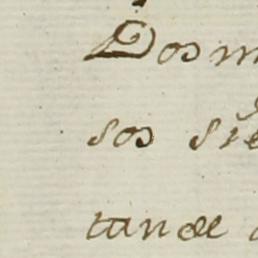 Dosm
sos sie
tande